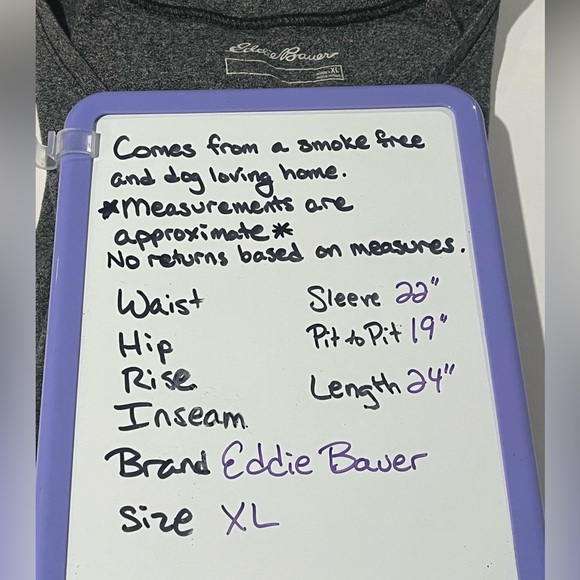 Eddie Bauer
XL
Comes from a smoke free
and dog loving home.
*Measurements are
approximate*
No returns based on measures.
Waist
Hip
Rise
Inseam
Sleeve 22"
Pit to Pit 19"
Length 24"
Brand Eddie Bauer
Size XL